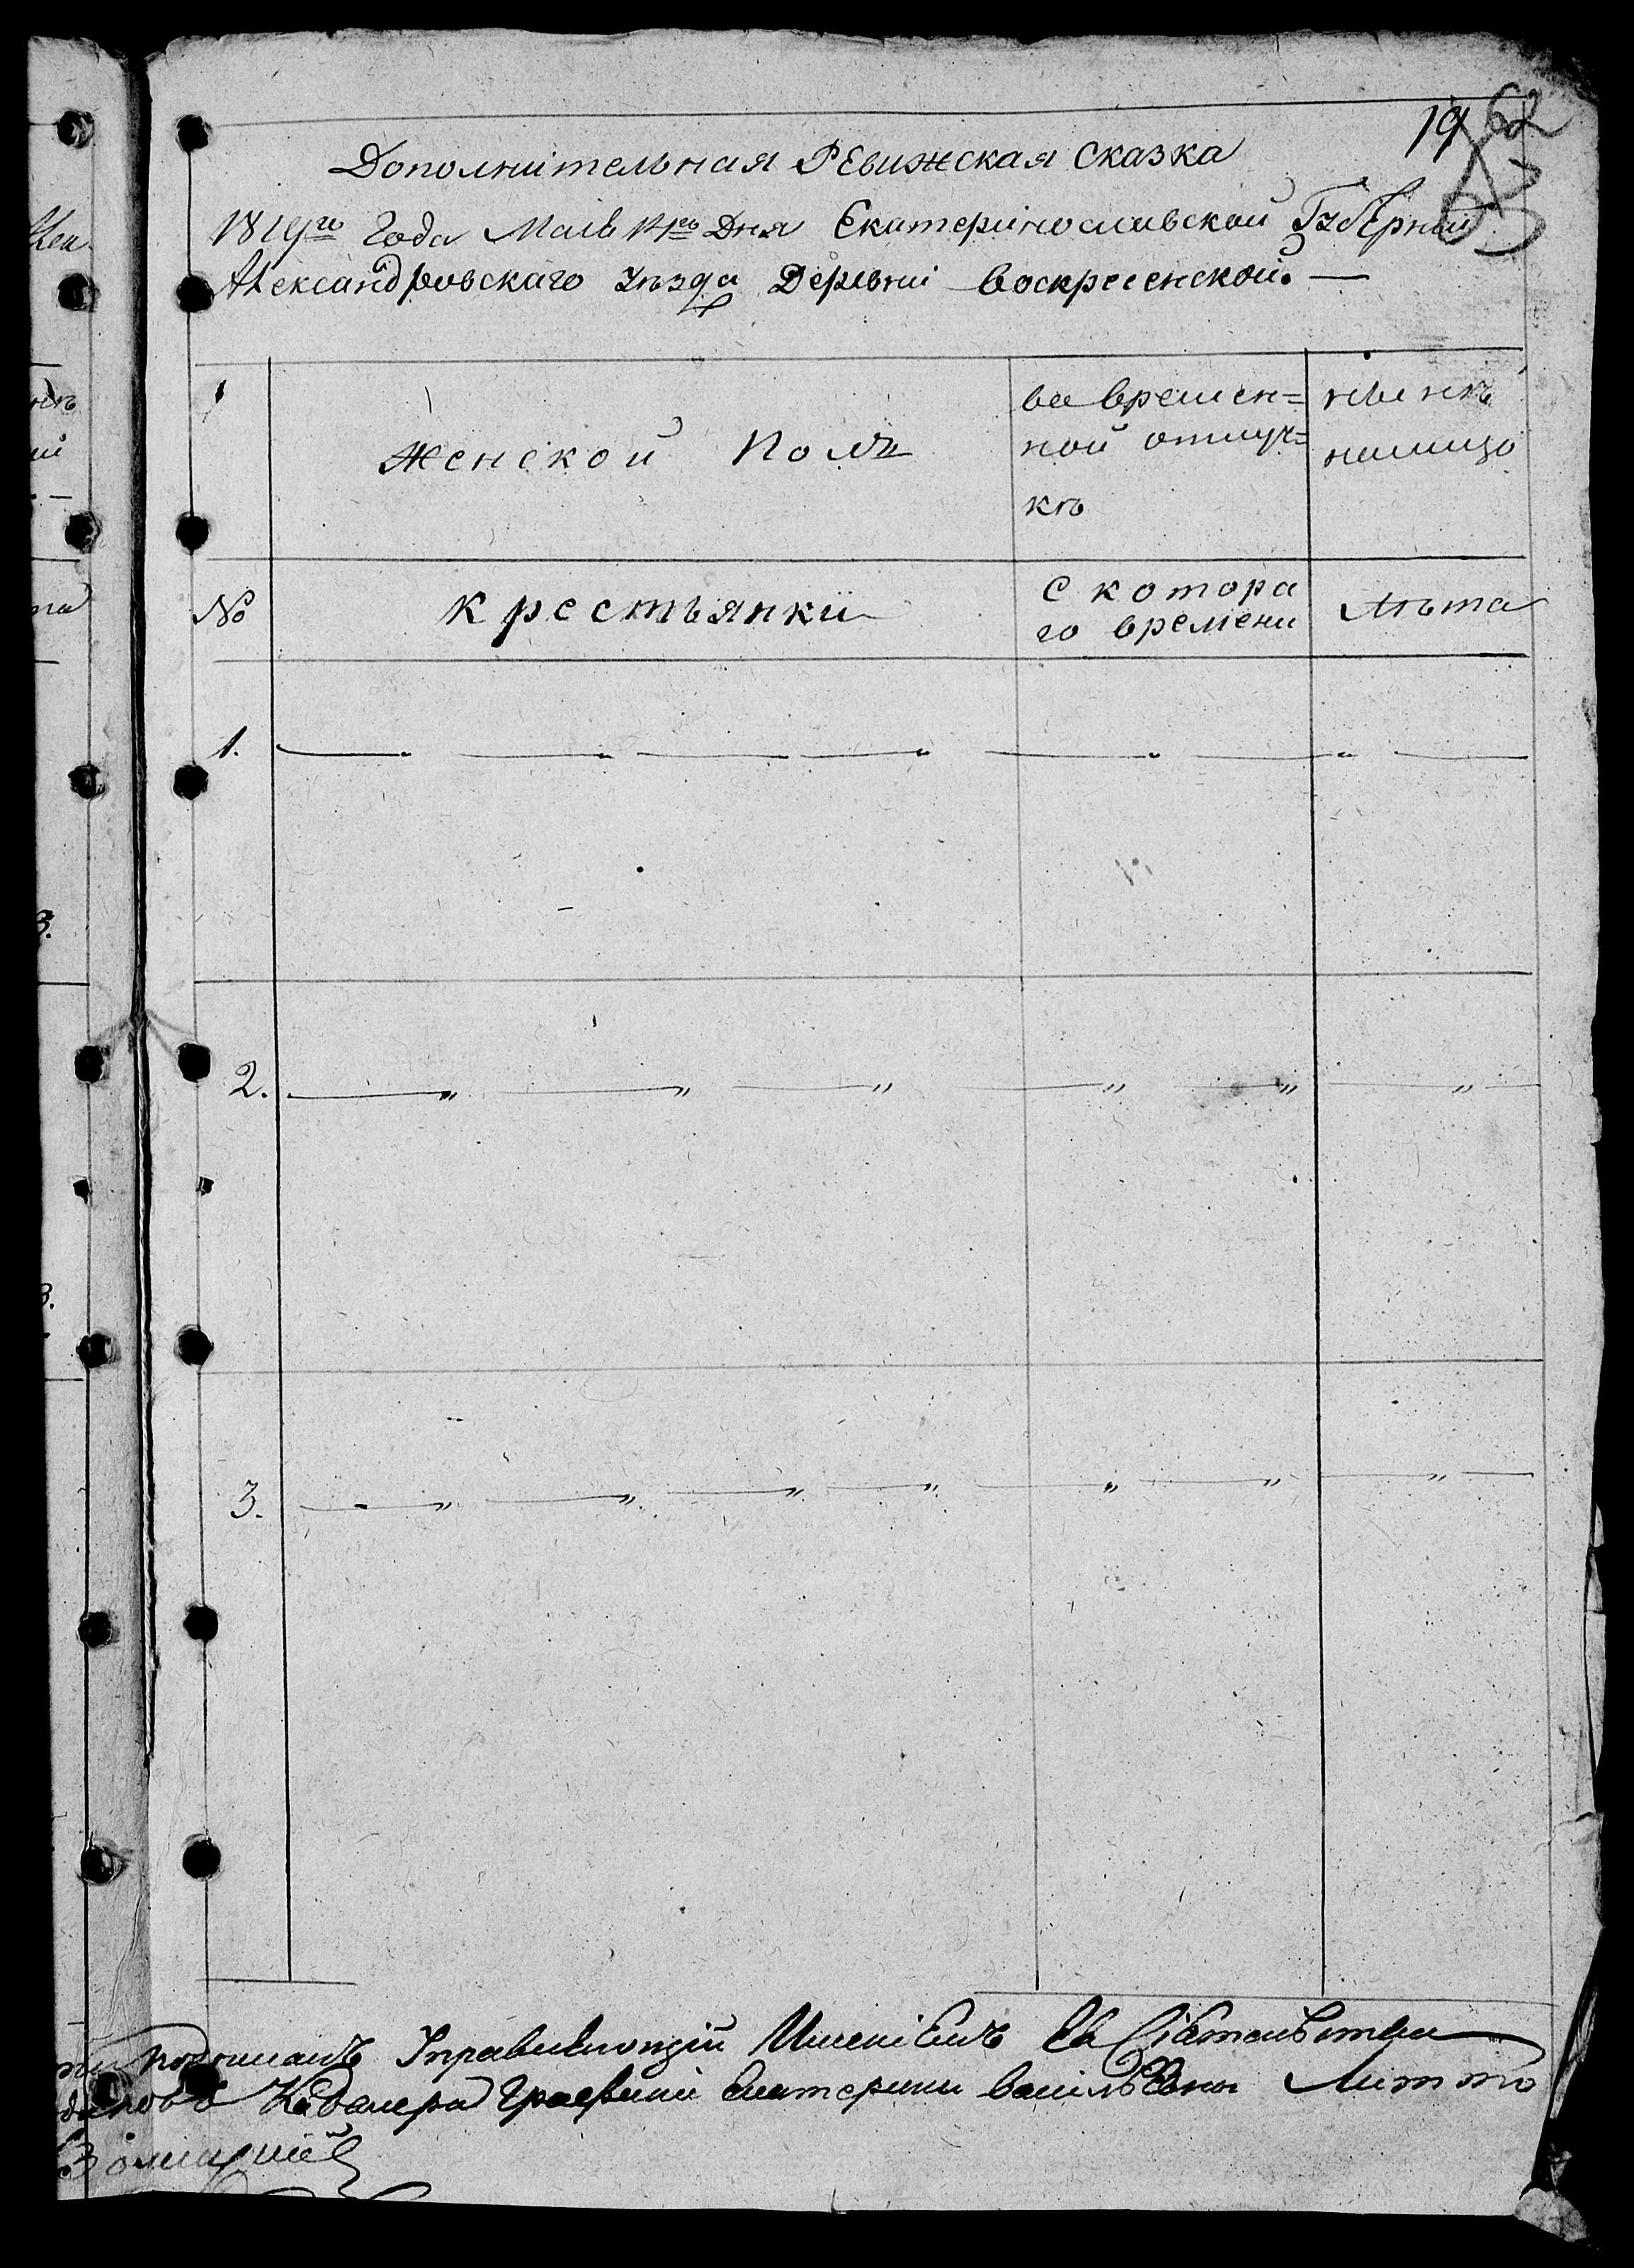 19 62
Дополнительная Ревижская Сказка
1819го Года Маiя Дня Екатеринославской Губерніи
Александровскаго Уѣзда Деревни Воскресенской. —
Женской Полъ
во времен=
ной отлуч=
кѣ
нынѣ
налицо
№
Крестьянки
С котора
го времени
Лѣта
1.
2.
3.
Управляющій Имѣніемъ Ея Сіятельства
Кавалера Графини Екатерины Васильевны Литто